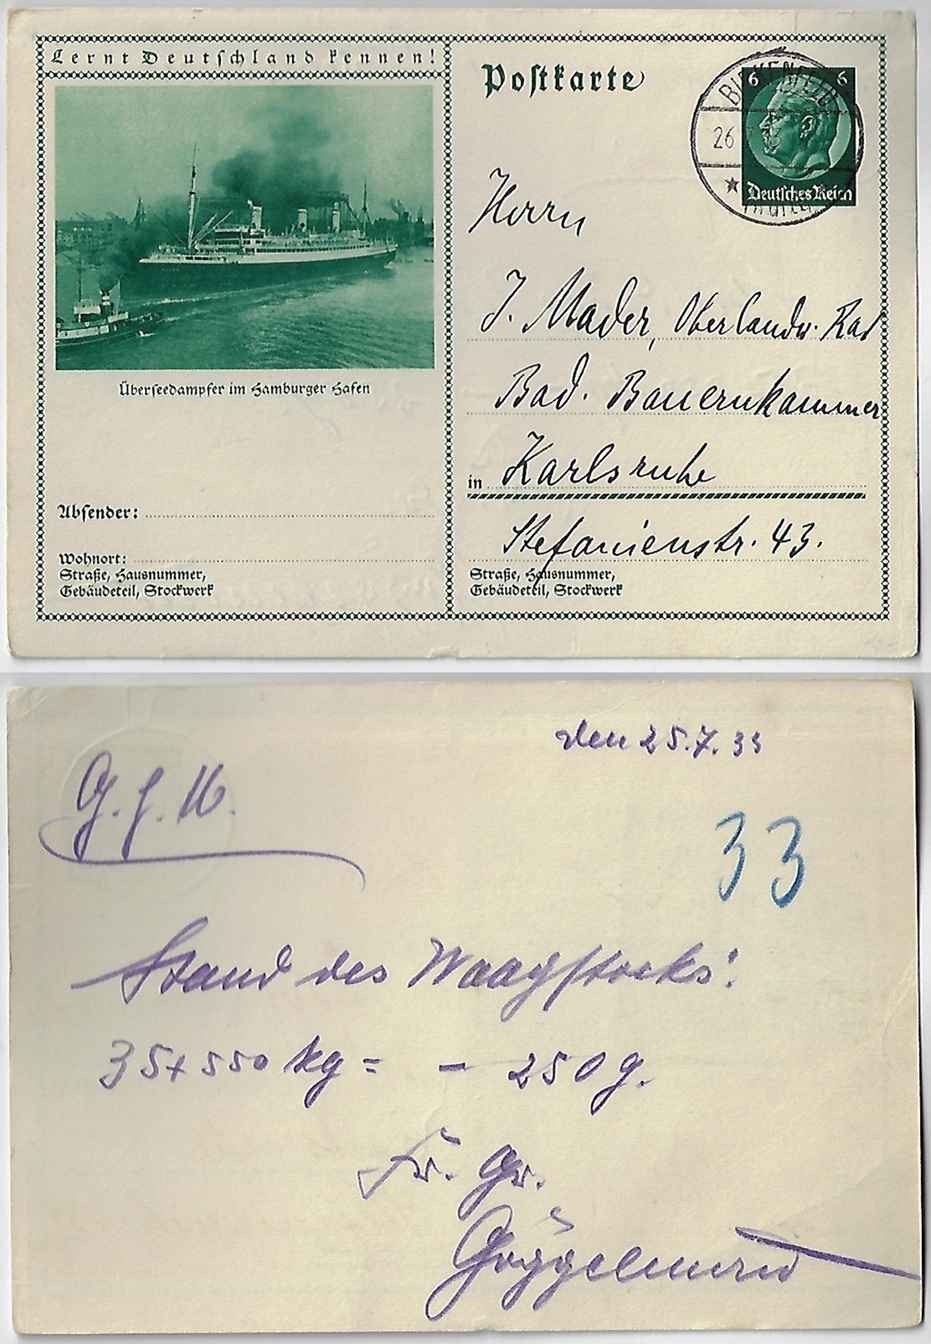 Lernt Deutschland kennen!
Überseedampfer im Hamburger Hafen
Absender:
Wohnort:
Straße, Hausnummer,
Gebäudeteil, Stockwerk
Postkarte
6 6
Deutsches Reich
BIRKENFELD
26
Herrn
J. Mader, Oberlandw. Rat
Bad. Bauernkammer
in Karlsruhe
Stefanienstr. 43.
Straße, Hausnummer,
Gebäudeteil, Stockwerk
den 25.7.33
33
Stand des Waagstocks:
35 + 550 kg = - 250 g.
Fr. Gr.